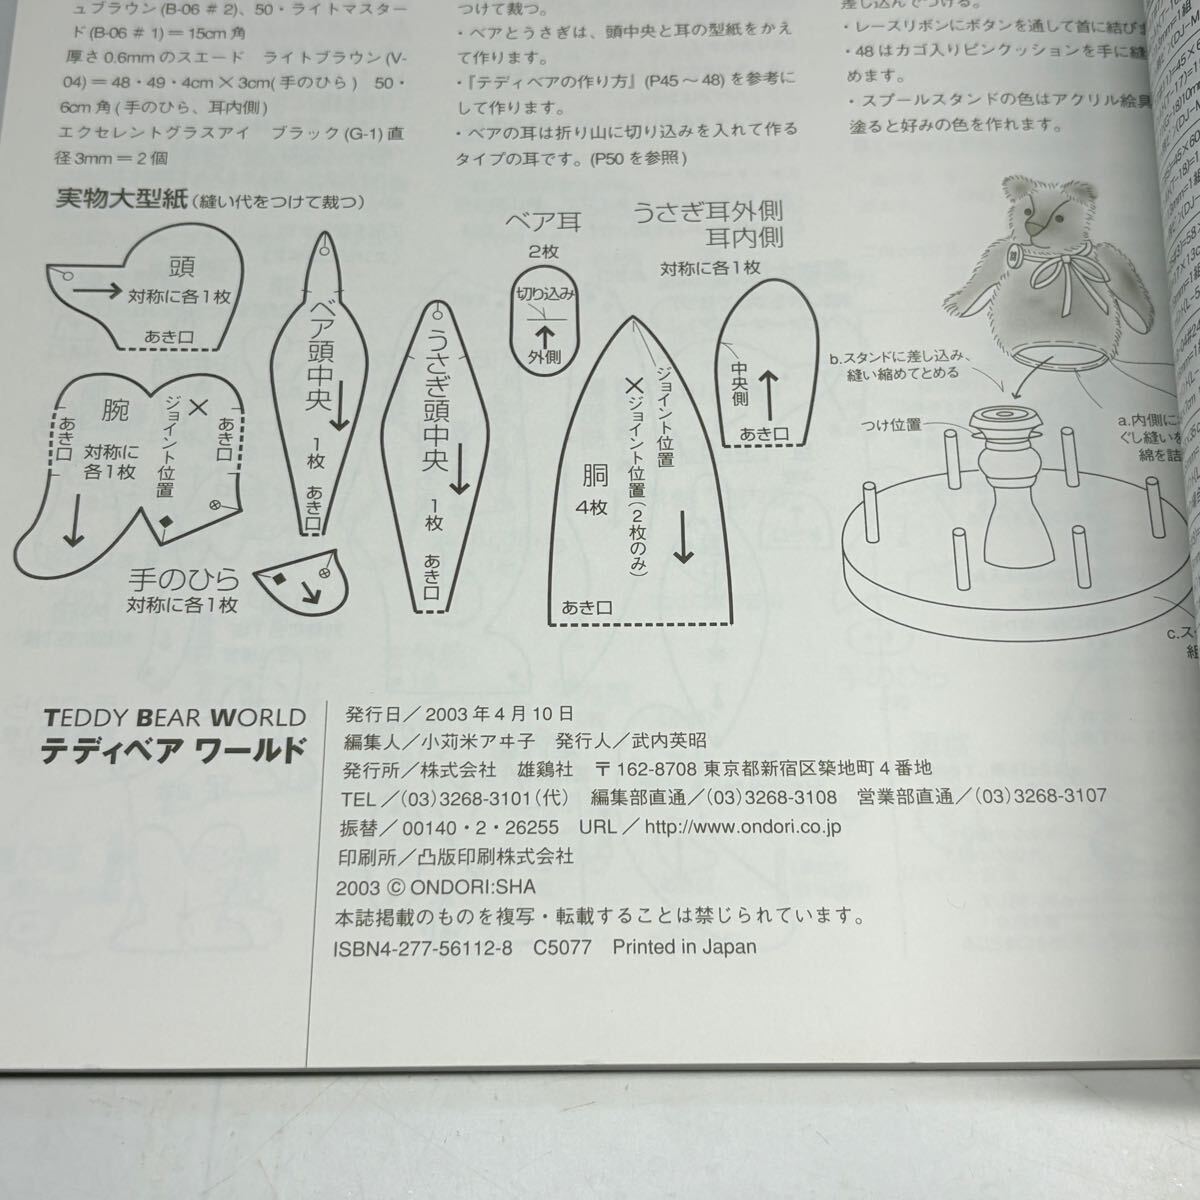 ュブラウン(B-06＃2)、50・ライトマスター
ド(B-06＃1)＝15cm角
厚さ0.6mmのスエード　ライトブラウン(V-
04)＝48・49・4cm×3cm(手のひら)　50・
6cm角(手のひら、耳内側)
エクセレントグラスアイ　ブラック(G-1)直
径3mm＝2個
つけて裁つ。
・ベアとうさぎは、頭中央と耳の型紙をかえ
て作ります。
・『テディベアの作り方』(P45～48)を参考に
して作ります。
・ベアの耳は折り山に切り込みを入れて作る
タイプの耳です。(P50を参照)
差し込んでつける。
・レースリボンにボタンを通して首に結びま
・48はカゴ入りピンクッションを手に縫
めます。
・スプールスタンドの色はアクリル絵具
塗ると好みの色を作れます。
実物大型紙(縫い代をつけて裁つ)
頭
対称に各1枚
あき口
ベア頭中央
1枚
あき口
うさぎ頭中央
1枚
あき口
ベア耳
2枚
切り込み
外側
うさぎ耳外側
耳内側
対称に各1枚
中央側
あき口
腕
対称に
各1枚
あき口
ジョイント位置
あき口
手のひら
対称に各1枚
胴
4枚
ジョイント位置
ジョイント位置(2枚のみ)
あき口
b.スタンドに差し込み、
縫い縮めてとめる
つけ位置
a.内側に
ぐし縫いを
綿を詰
c.ス
組
TEDDY BEAR WORLD
テディベア ワールド
発行日／2003年4月10日
編集人／小苅米アヰ子　発行人／武内英昭
発行所／株式会社　雄鷄社　〒162-8708 東京都新宿区築地町4番地
TEL／(03)3268-3101(代)　編集部直通／(03)3268-3108　営業部直通／(03)3268-3107
振替／00140・2・26255　URL／http://www.ondori.co.jp
印刷所／凸版印刷株式会社
2003 Ⓒ ONDORI:SHA
本誌掲載のものを複写・転載することは禁じられています。
ISBN4-277-56112-8　C5077　Printed in Japan